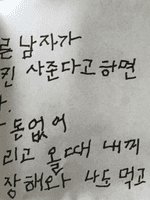 른남자가
킨 사준다고하면
다.
돈없어
리고 올때 내꺼
장해와 나도 먹고